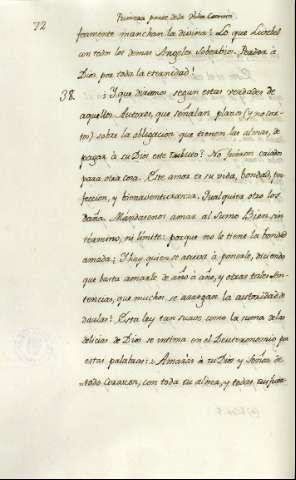 72
Primera parte de la Vida Comun.
feamente manchan la divina: Lo que Luzbel
con todos los demas Angeles soberbios. Perder à
Dios por toda la eternidad!
38. ¿Y que diremos segun estas verdades de
aquellos Autores, que señalan plazos (y no cor-
tos) sobre la obligacion que tienen las almas, de
pagar à su Dios este tributo? No fueron criados
para otra cosa. Este amor es su vida, bondad, per-
feccion, y bienaventuranza. Qualquiera otro los
daña. Mandasenos amar al Sumo Bien sin
término, ni límite: porque no le tiene la bondad
amada; Y hay quien se atreva à ponerle, diciendo
que basta amarle de año à año, y otras tales sen-
tencias, que muchos se arrogan la autoridad de
darlas? Esta ley tan suave como la suma de las
delicias de Dios se intima en el Deuteronomio por
estas palabras: Amarás à tu Dios y Señor de
todo corazon, con toda tu alma, y todas tus fuer-